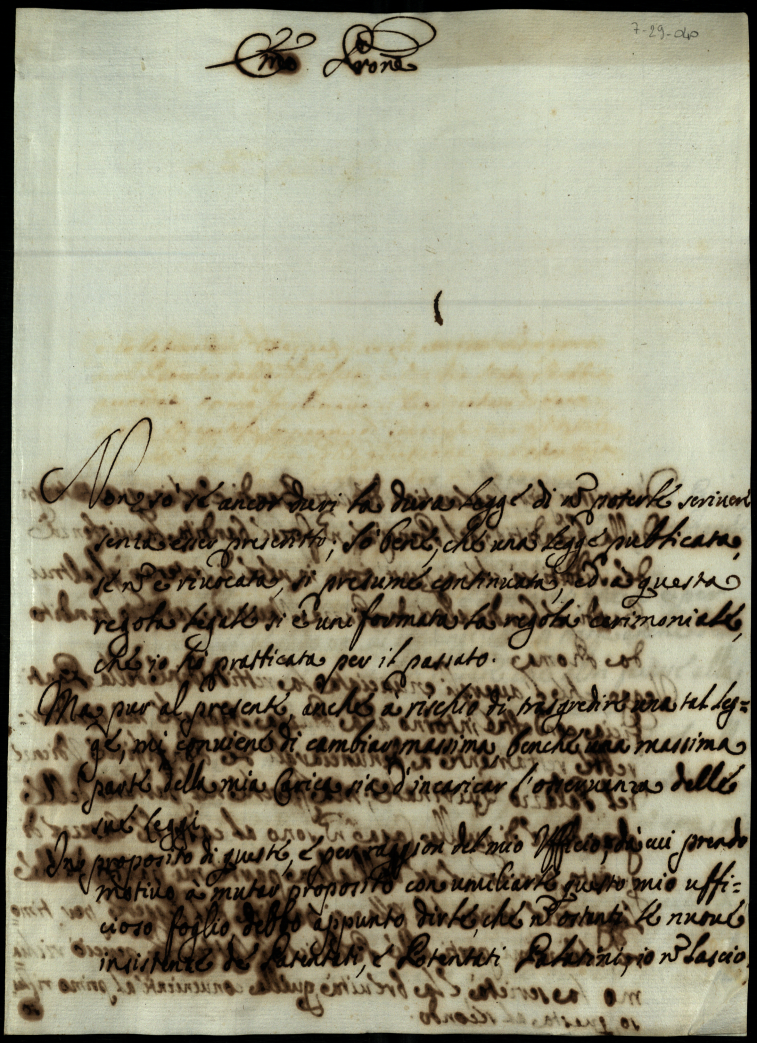 7-29-040
Emo Prone
Non so se ancor duri la dura legge di nõ poterle scriuere
senza esser prescritto; So bene, che una legge publicata,
se nõ è riuocata, si presume continuata, ed à questa
regola legale si è uniformata la regola cerimoniale,
che io hò pratticata per il passato.
Ma pur al presente, anche à rischio di trasgredire una tal leg=
ge, mi conuiene di cambiar massima benche una massima
parte della mia Carica sia d'incaricar l'osseruanza delle
sue leggi.
In proposito di queste, e per raggion del mio Ufficio, da cui prendo
motiuo à mutar proposito con umiliarle questo mio uffi=
cioso foglio debbo appunto dirle, che nõ ostanti le nuoue
insistenze de Parentati, e Potentati Palatini, io nõ lascio